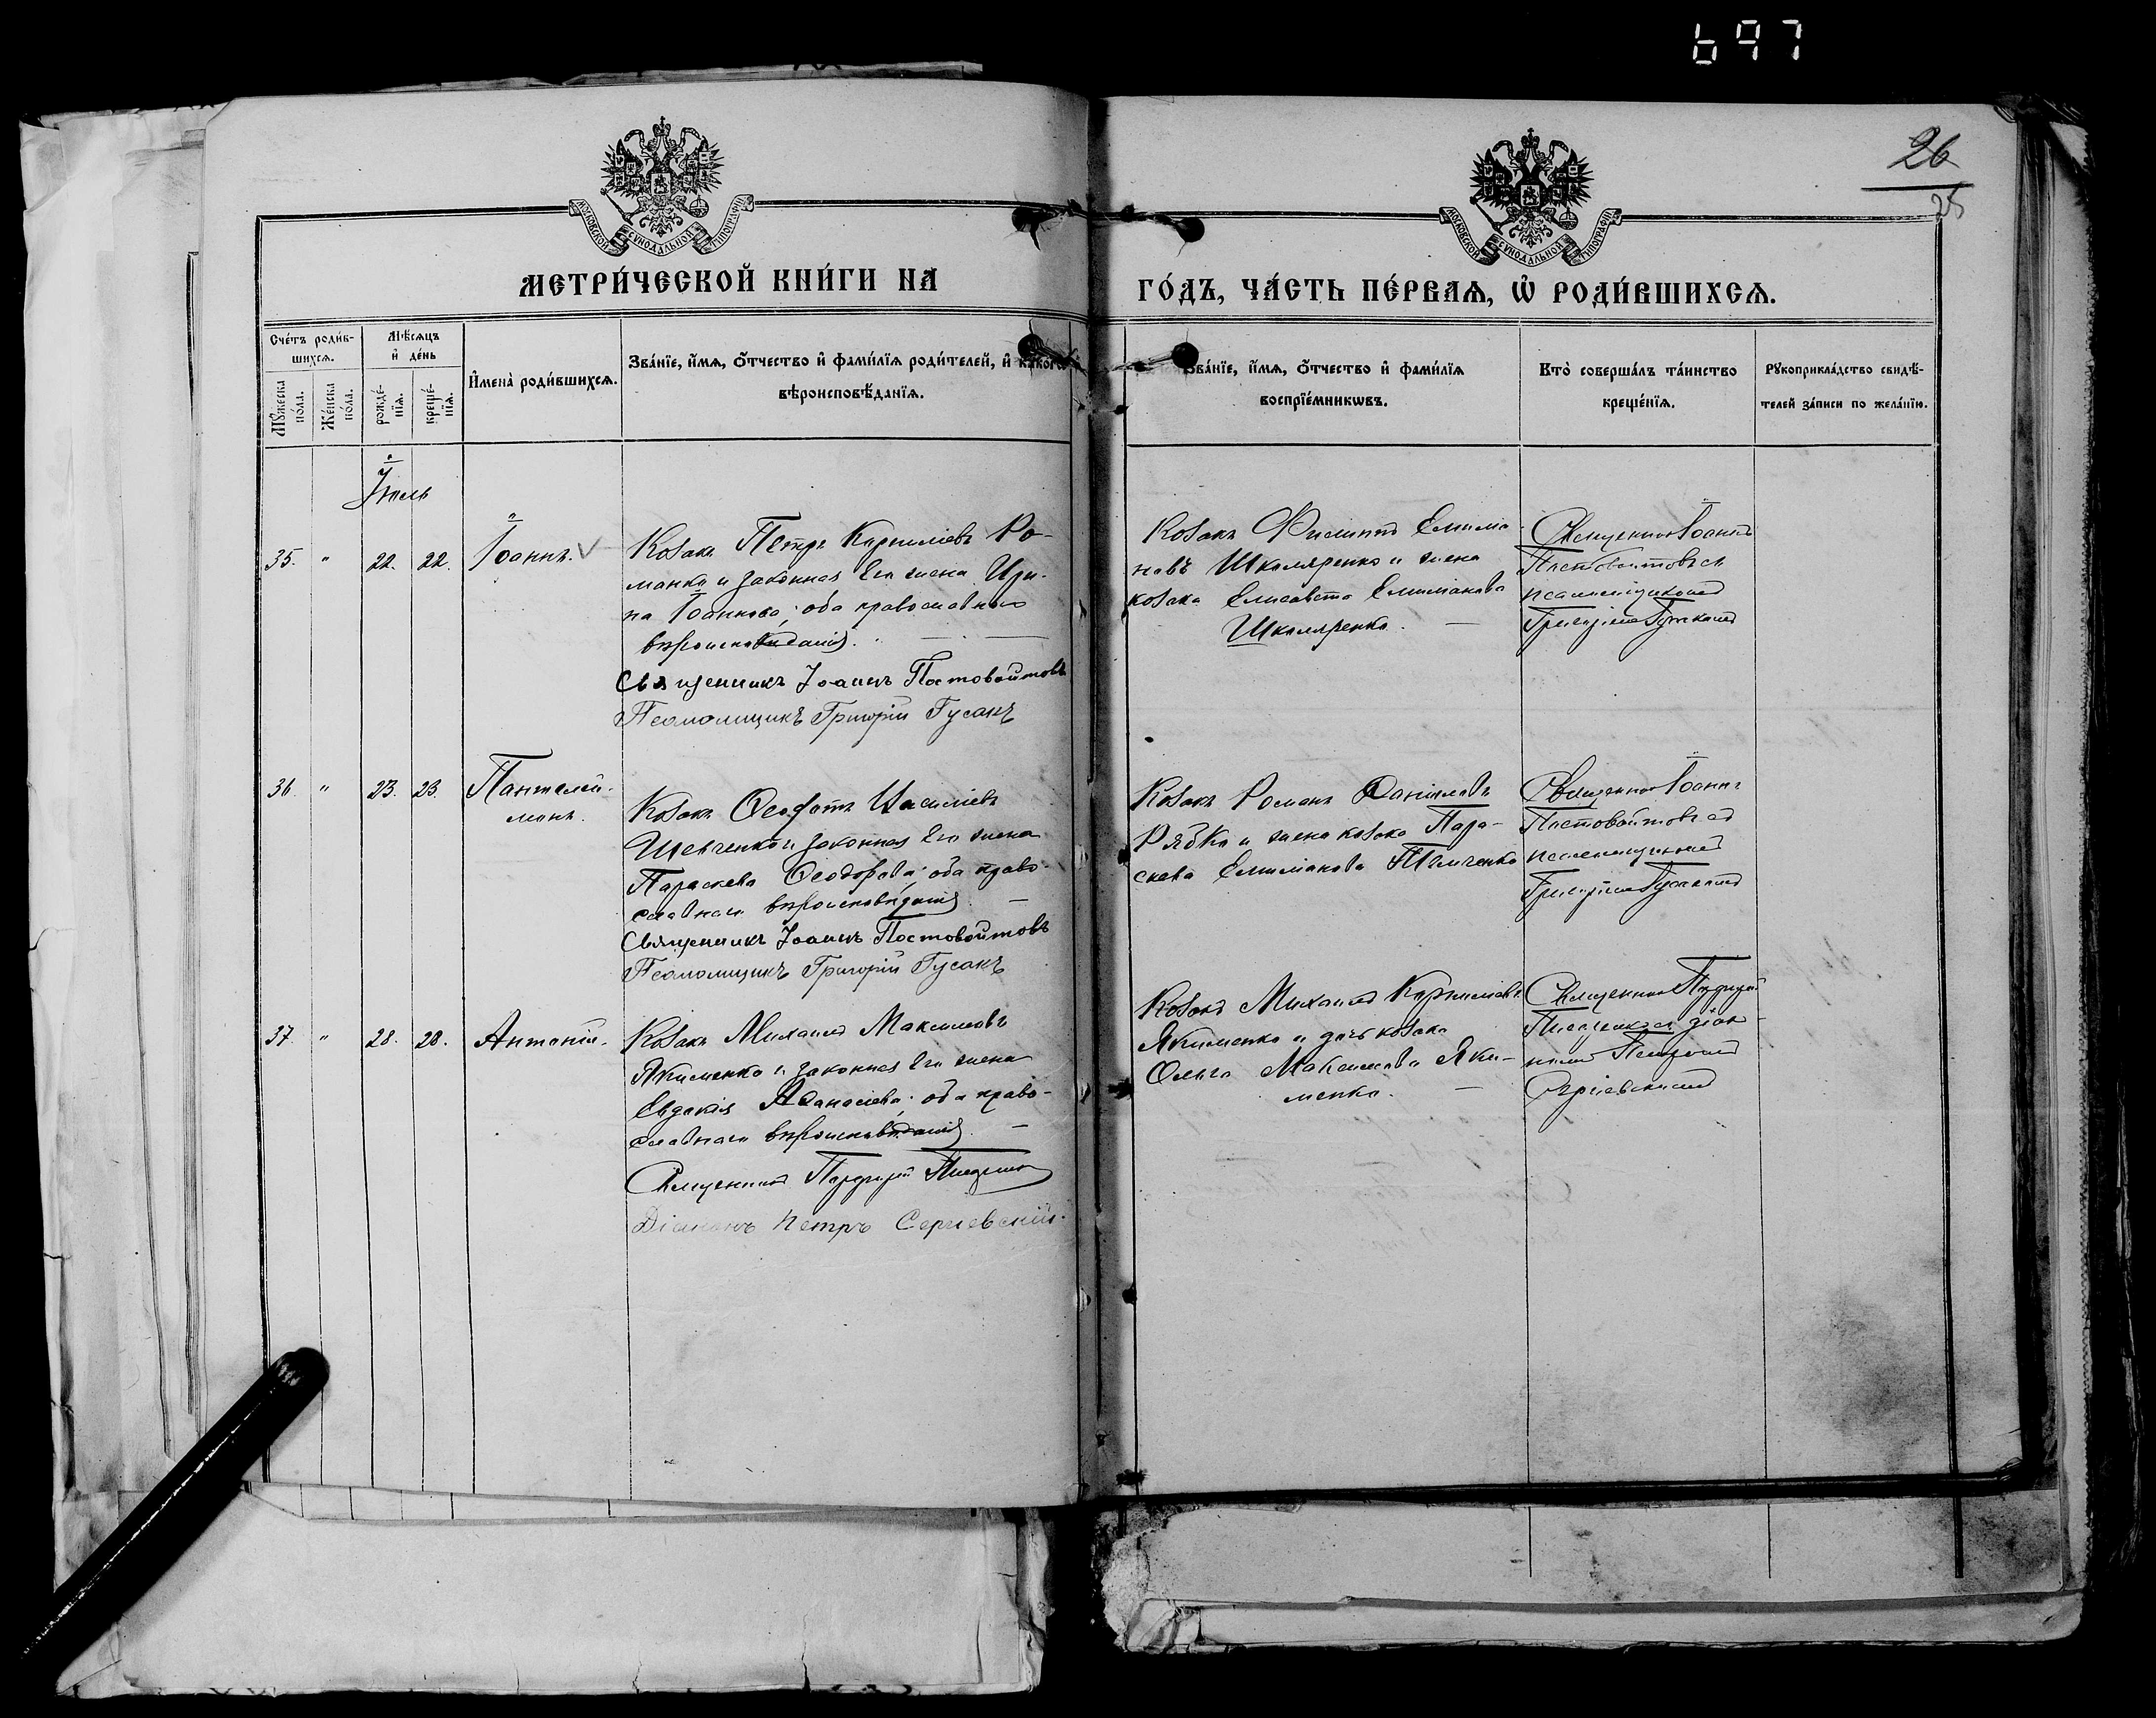 697
26
25
МОСКОВСКОЙ СѴНОДАЛЬНОЙ ТИПОГРАФІИ
МОСКОВСКОЙ СѴНОДАЛЬНОЙ ТИПОГРАФІИ
МЕТРИ́ЧЕСКОЙ КНИ́ГИ НА
ГО́ДЪ, ЧА́СТЬ ПЕ́РВАѦ, Ѡ҆ РОДИ́ВШИХСѦ.
Сче́тъ роди́в-
шихсѧ.
Мꙋжеска по́ла.
Же́нска по́ла.
Мѣ́сѧцъ
и҆ де́нь
рожде́-
нїѧ.
креще́-
нїѧ.
И҆мена̀ роди́вшихсѧ.
Зва́нїе, и҆́мѧ, ѻ҆́тчество и҆ фами́лїѧ роди́телей, и҆ како́гѡ
вѣроисповѣ́данїѧ.
Зва́нїе, и҆́мѧ, ѻ҆́тчество и҆ фами́лїѧ
воспрїе́мникѡвъ.
Кто̀ соверша́лъ та́инство
креще́нїѧ.
Рꙋкоприкла́дство свидѣ́-
телей за́писи по жела́нїю.
Іюль
35. " 22. 22. Іоаннъ. V
Козакъ Петръ Корниліевъ Ро-
манко и законная его жена Ири-
на Іоаннова; оба православнаго
вѣроисповѣданія.
Священникъ Іоаннъ Постовойтовъ
Псаломщикъ Григорій Гусакъ
Козакъ Филиппъ Емилiа-
новъ Шкляренко и жена
козака Елисавета Емиліанова
Шкляренко.
Священникъ Іоаннъ
Постовойтовъ съ
псаломщикомъ
Григоріемъ Гусакомъ
36. " 23. 23. Пантелей-
монъ.
Козакъ Ѳеофатъ Василіевъ
Шевченко и законная его жена
Параскева Ѳеодорова; оба право-
славнаго вѣроисповѣданія.
Священникъ Іоаннъ Постовойтовъ
Псаломщикъ Григорій Гусакъ
Козакъ Романъ Даніиловъ
Рябко и жена козака Пара-
скева Емиліанова
Священникъ Іоаннъ
Постовойтовъ съ
псаломщикомъ
Григоріемъ Гусакомъ
37. " 28. 28. Антоній.
Козакъ Михаилъ Максимовъ
Якименко и законная его жена
Евдокія Аѳанасіева; оба право-
славнаго вѣроисповѣданія.
Священникъ
Діаконъ Петръ Сергіевскій.
Козакъ Михаилъ Корниліевъ
Якименко и дочь козака
Ольга Максимова Яки-
менко.
Священникъ
діако-
номъ Петромъ
Сергіевскимъ